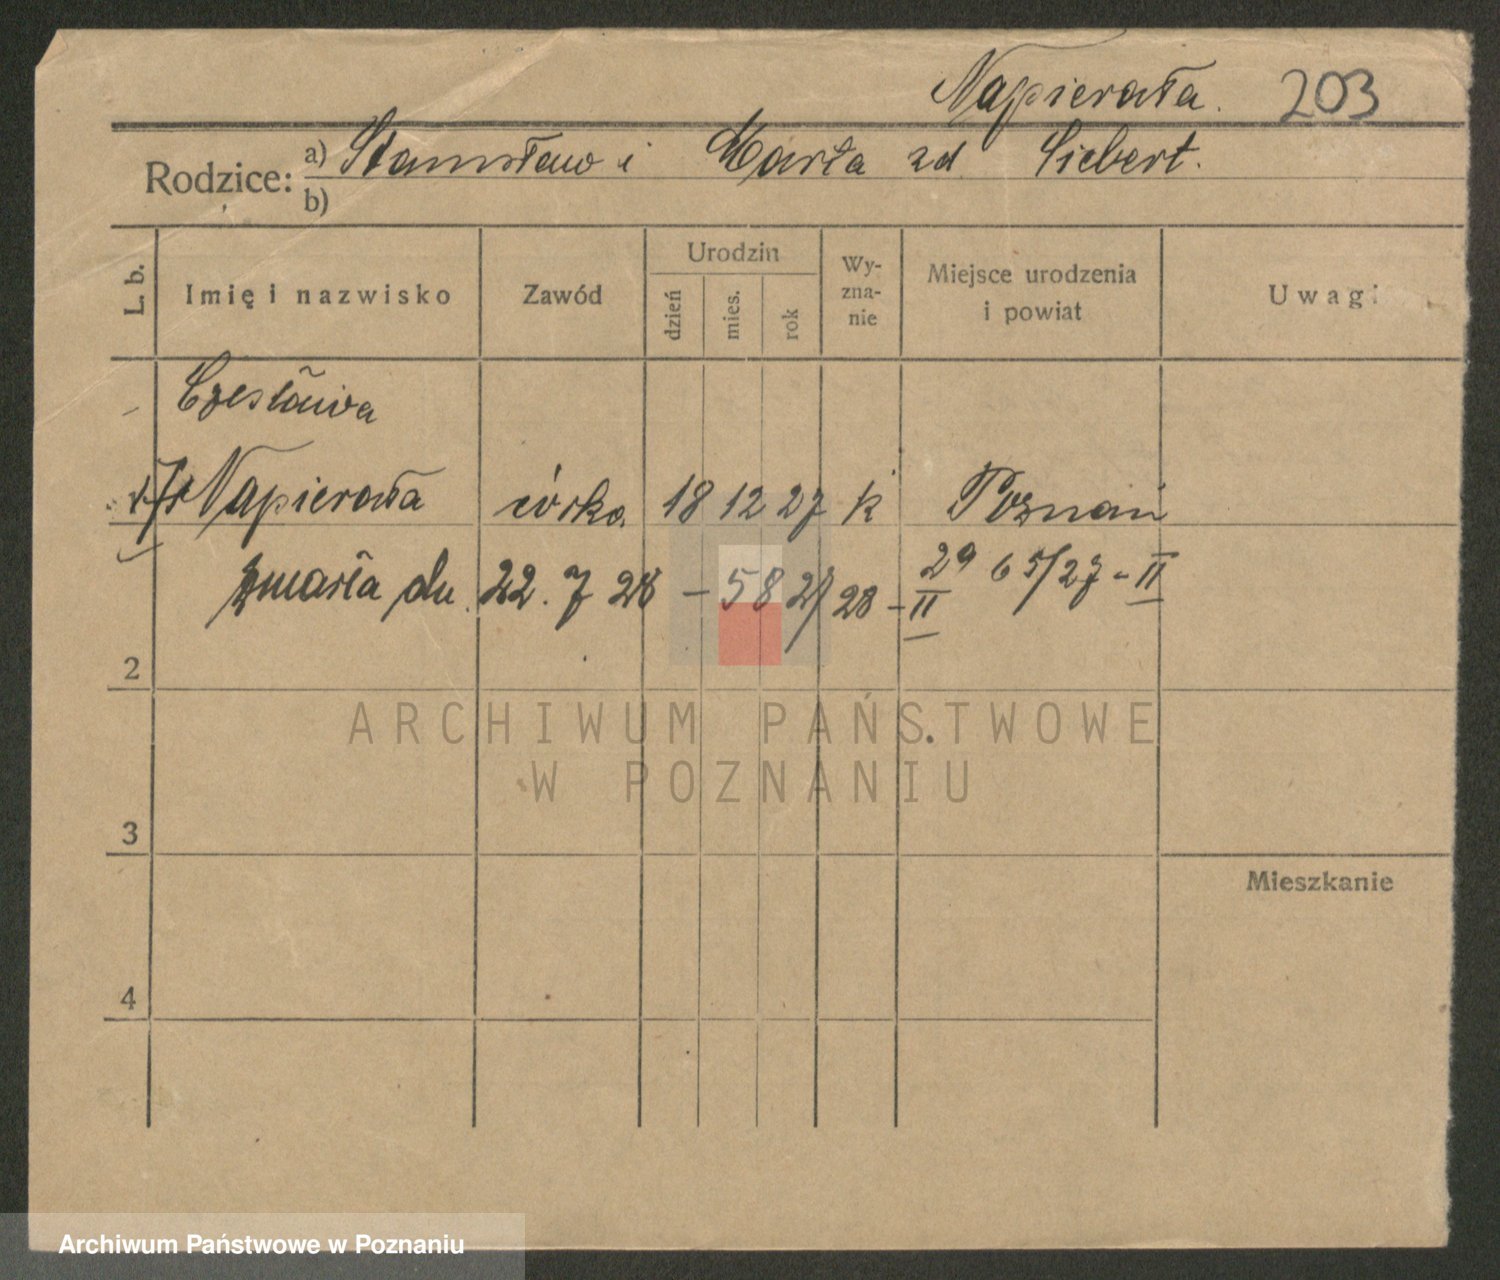 Napierała. 203
Rodzice: a) Stanisław i Marta zd Siebert.
b)
L. b. Imię i nazwisko Zawód Urodzin dzień mies. rok Wy-zna-nie Miejsce urodzenia i powiat Uwagi
Czesława
Napierała córka 18 12 27 k Poznań
zmarła dn. 22. 7 28 – 58 27/28 – II 29 65/27 – II
2
ARCHIWUM PAŃSTWOWE
W POZNANIU
3
Mieszkanie
4
Archiwum Państwowe w Poznaniu